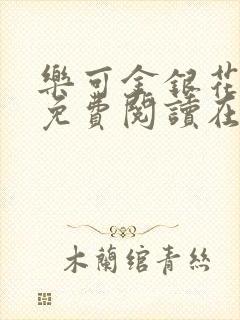 樂可金銀花
免費閱讀在
木蘭綰青絲